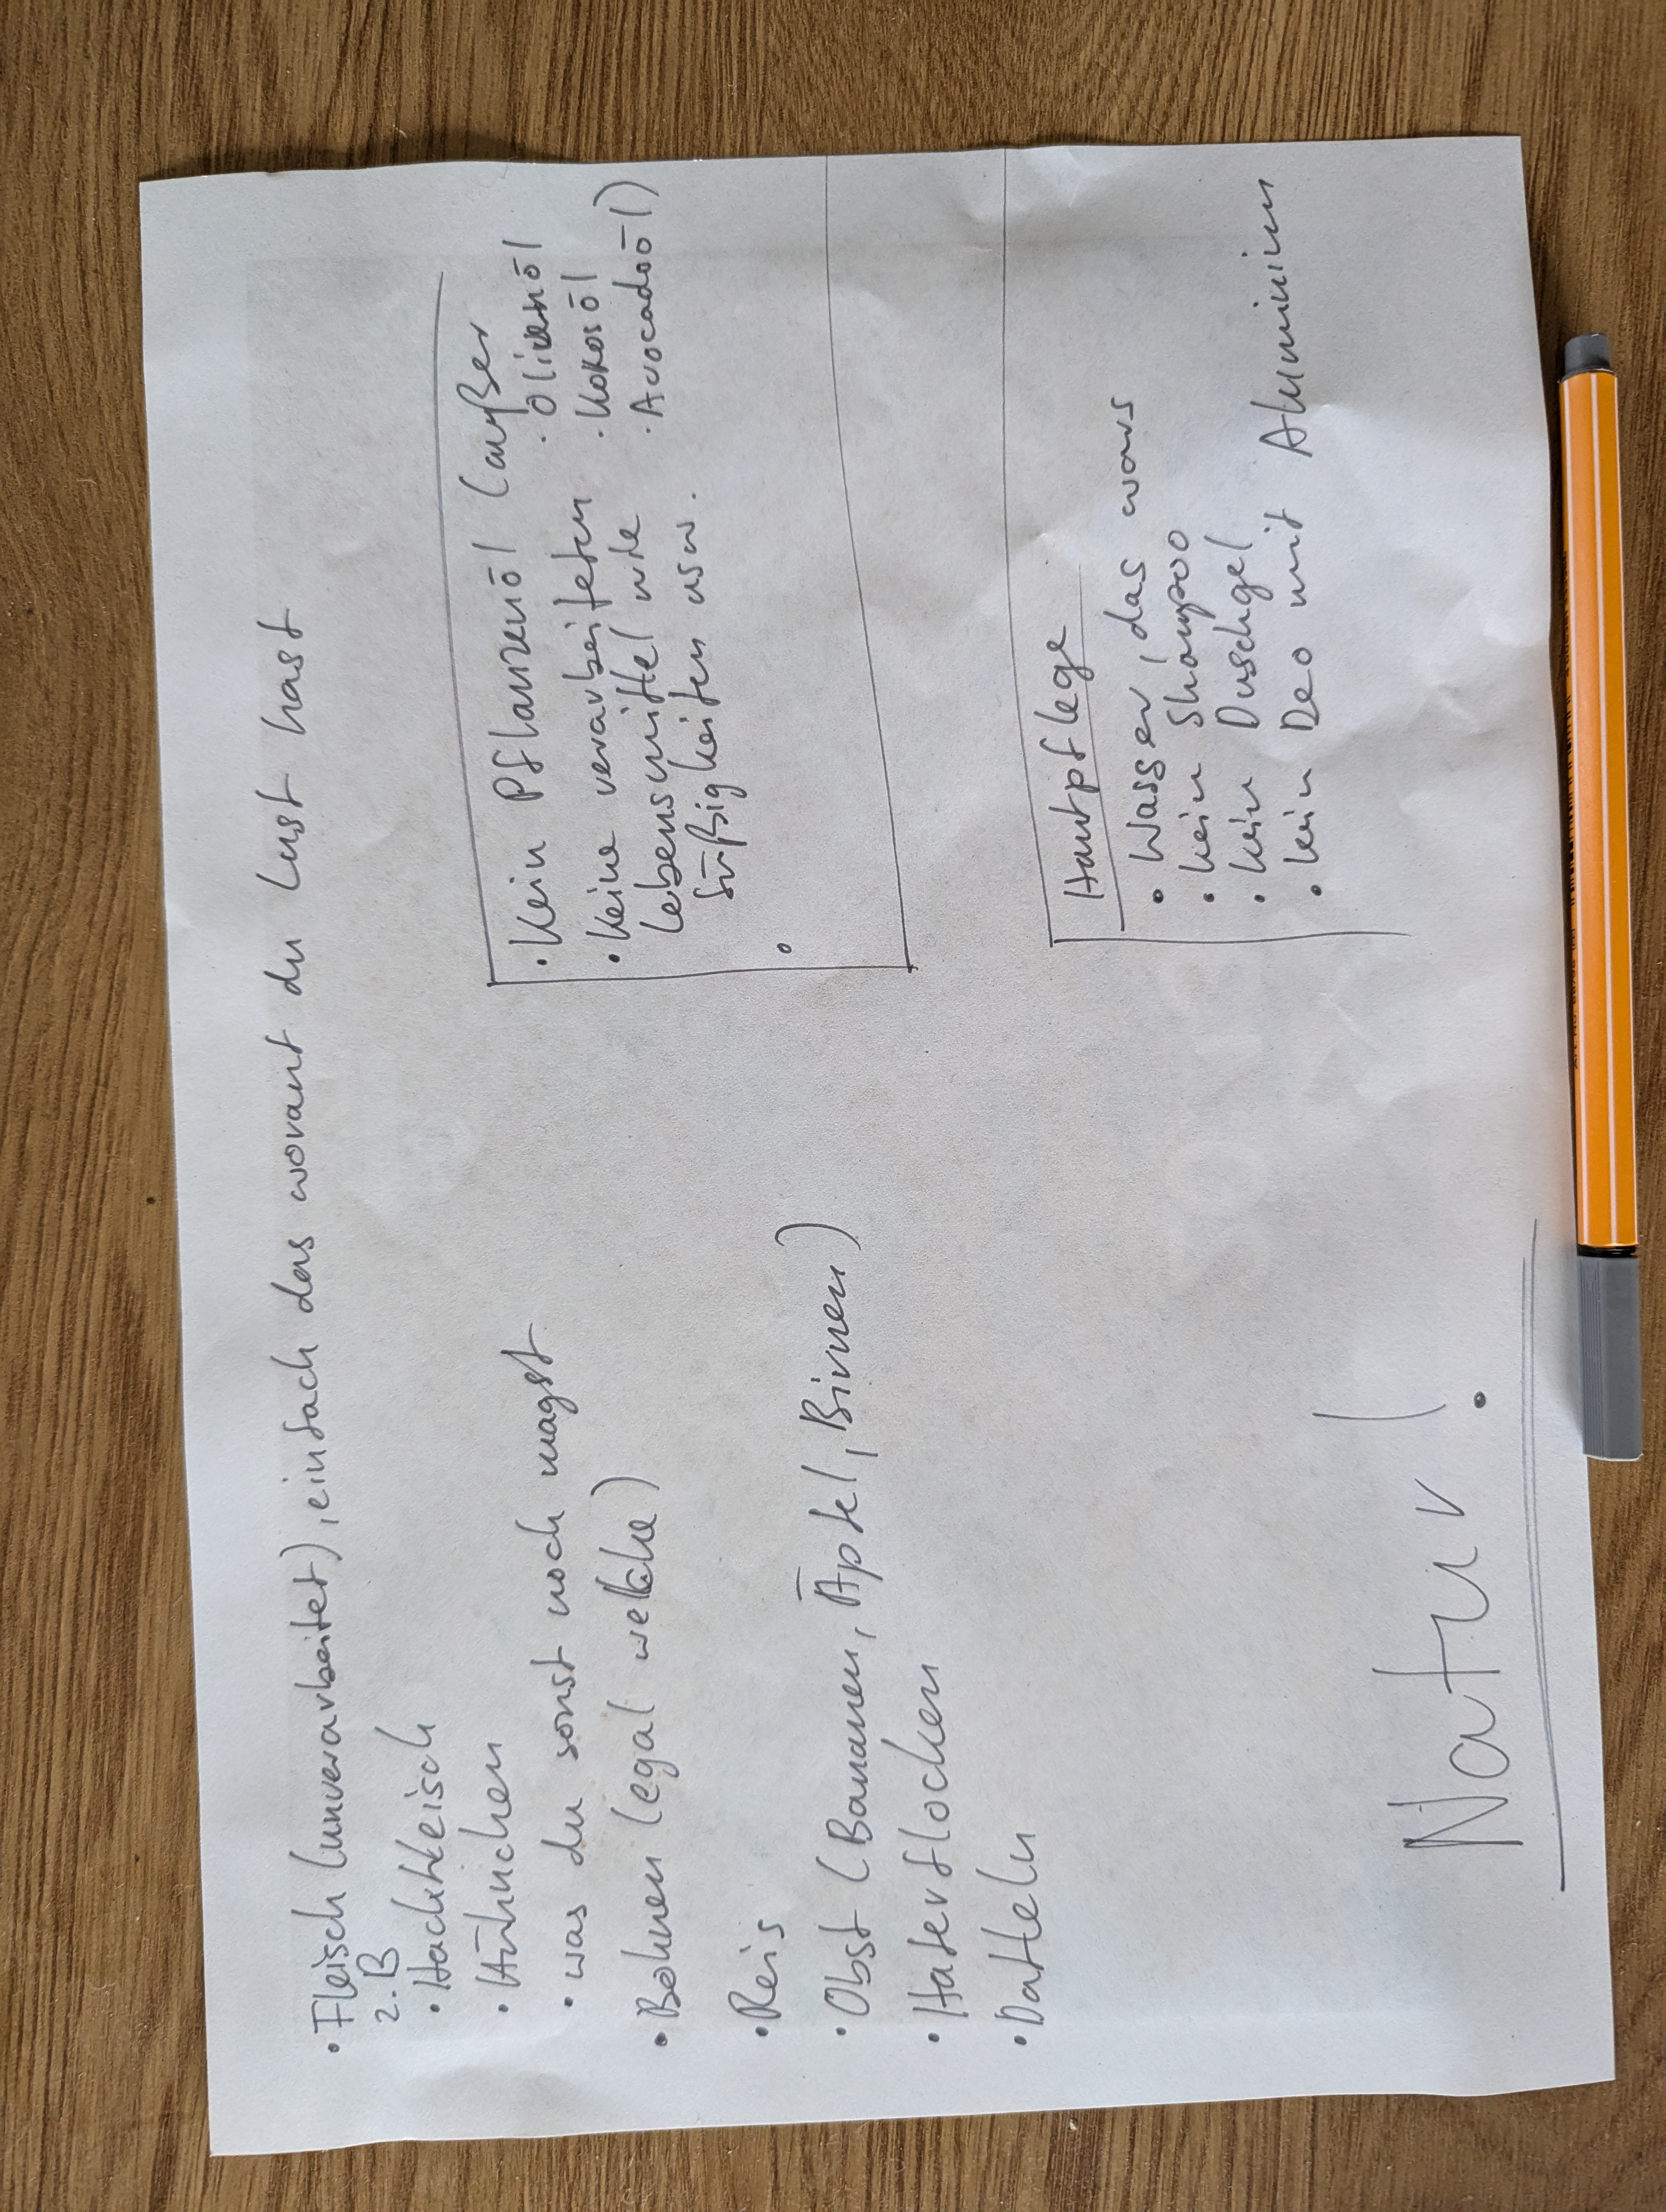 • Fleisch (unverarbeitet), einfach das worauf du Lust hast
z.B
• Hackfleisch
• Hühnchen
• was du sonst noch magst
• Bohnen (egal welche)
• Reis
• Obst (Bananen, Äpfel, Birnen)
• Haferflocken
• Datteln
• Kein Pflanzenöl (außer
• Olivenöl
• Kokosöl
• Avocadoöl)
• Keine verarbeiteten
Lebensmittel wie
Süßigkeiten usw.
•
Hautpflege
• Wasser, das wars
• kein Shampoo
• kein Duschgel
• kein Deo mit Aluminium
Natur!